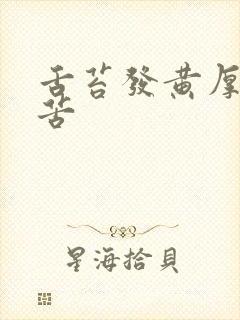 舌苔發黃厚
苦
星海拾貝